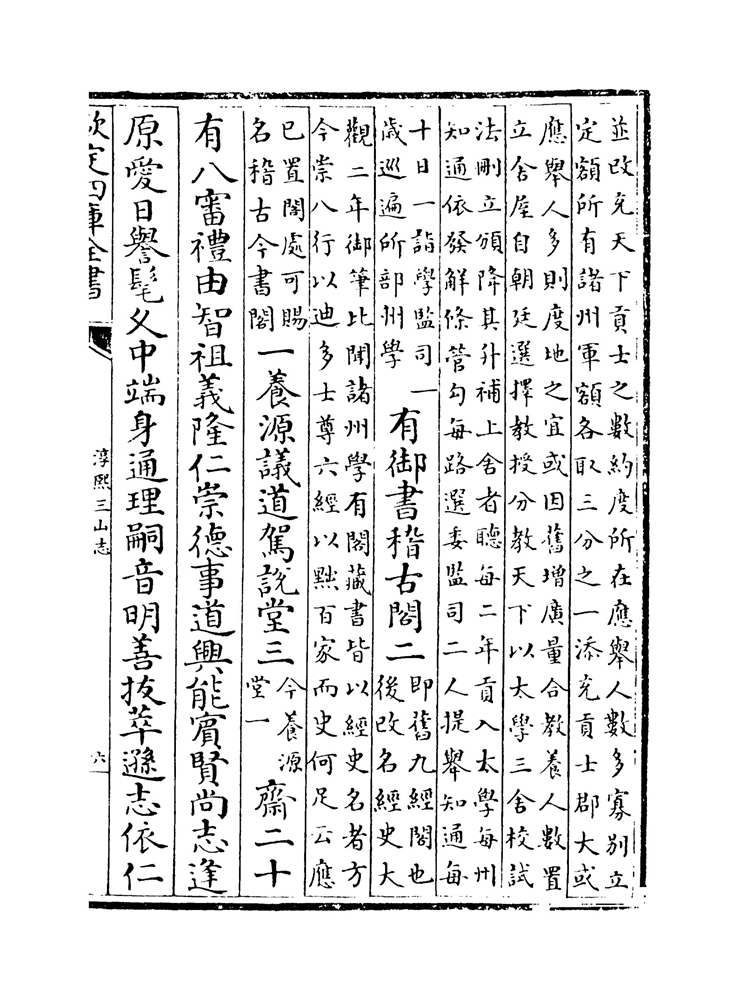 並改充天下貢士之數約度所在應舉人數多寡別立
定額所有諸州軍額各取三分之一添充貢士郡大或
應舉人多則度地之宜或因舊增廣量合教養人數置
立舍屋自朝廷選擇教授分教天下以太學三舍校試
法刪立頒降其升補上舍者聽每二年貢入太學每州
知通依發解條管勾每路選委監司二人提舉知通每
十日一詣學監司一
歲巡遍所部州學
有御書稽古閣二
即舊九經閣也
後改名經史大
觀二年御筆比聞諸州學有閣藏書皆以經史名者方
今崇八行以迪多士尊六經以黜百家而史何足云應
已置閣處可賜
名稽古今書閣
一養源議道駕說堂三
今養源
堂一
齋二十
有八審禮由智祖義隆仁崇德事道興能賓賢尚志逢
原愛日譽髦乂中端身通理嗣音明善拔萃遜志依仁
欽定四庫全書
淳熙三山志
六